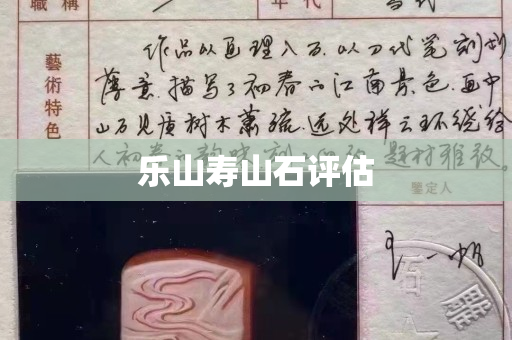 職稱 年代
作品以画理入石,以刀代笔刻划
藝術特色
薄意.描写了初春的江南景色.画中
山石 树木萧疏.远处祥云环绕给
人初春之 题材雅致.
乐山寿山石评估
鑒定人